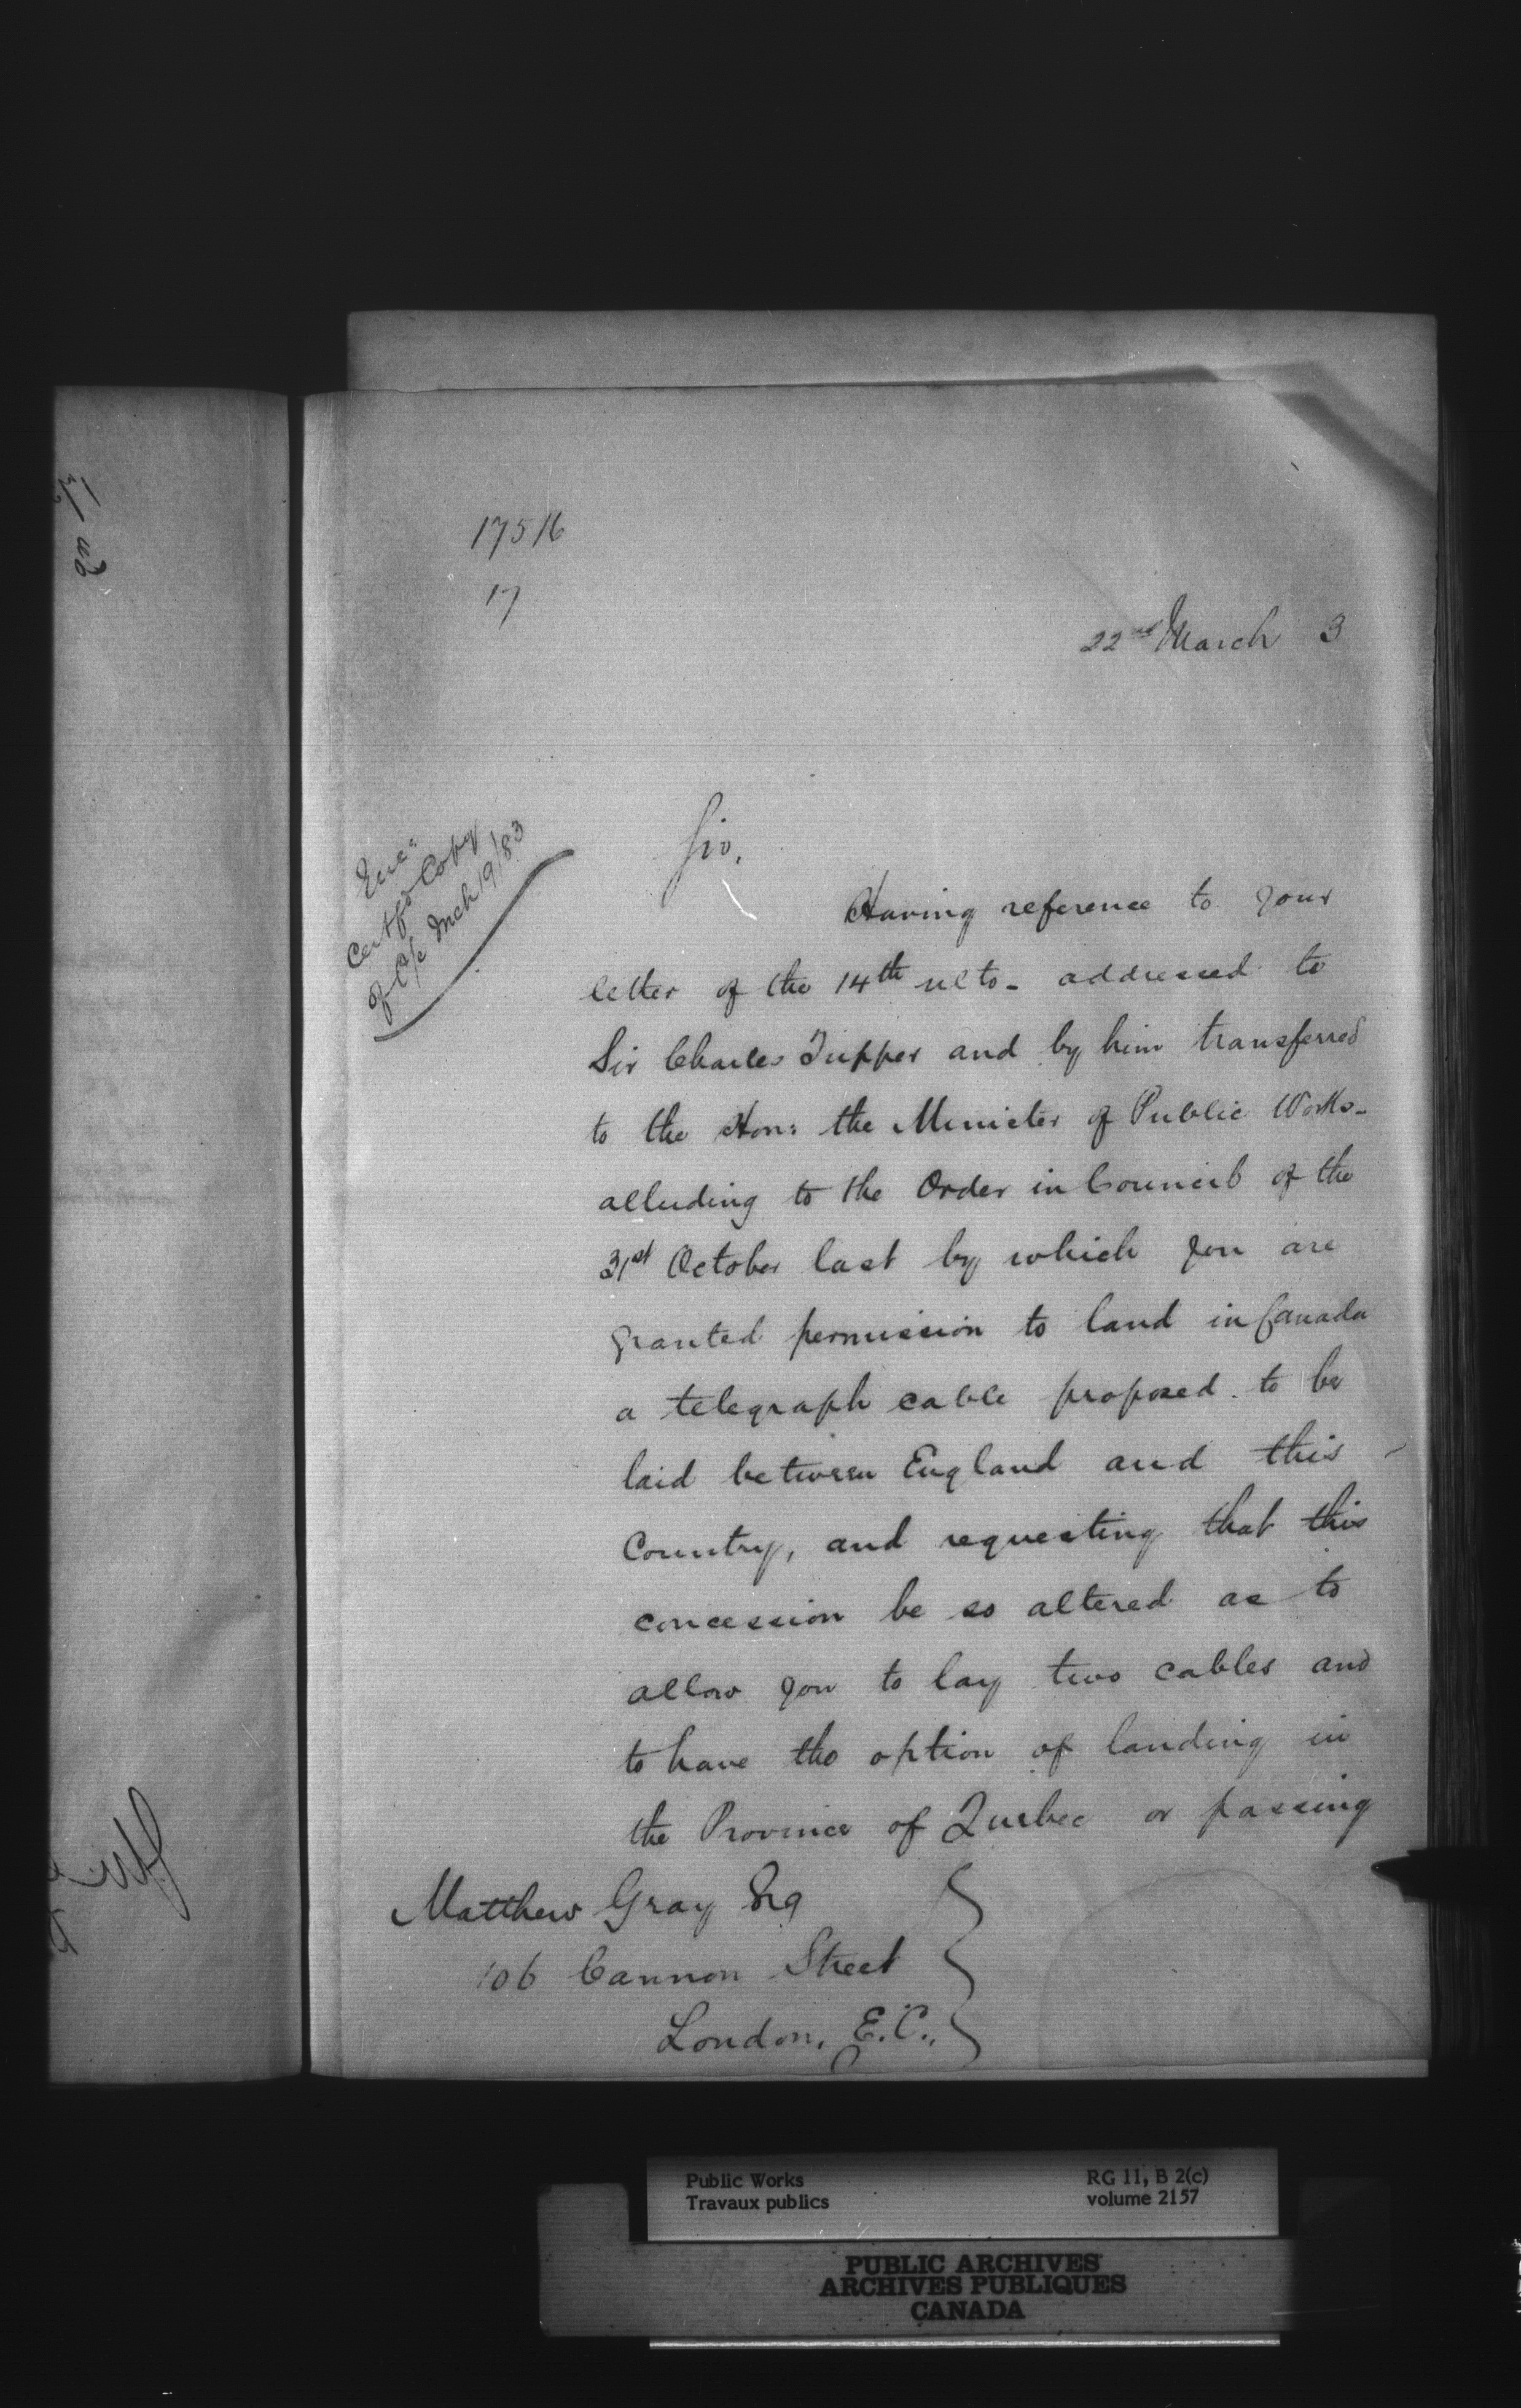 17516
17
22nd March 3
Enc:
Certf'd Copy
of O/C Mch 19/83
Sir,
Having reference to your
letter of the 14th ulto- addressed to
Sir Charles Tupper and by him transferred
to the Hon: the Minister of Public Works-
alluding to the Order in Council of the
31st October last by which you are
granted permission to land in Canada
a telegraph cable proposed to be
laid between England and this
Country, and requesting that this
concession be so altered as to
allow you to lay two cables and
to have the option of landing in
the Province of Quebec or passing
Matthew Gray Esq
106 Cannon Street
London, E.C.,
Public Works
Travaux publics
RG 11, B 2(c)
volume 2157
PUBLIC ARCHIVES
ARCHIVES PUBLIQUES
CANADA